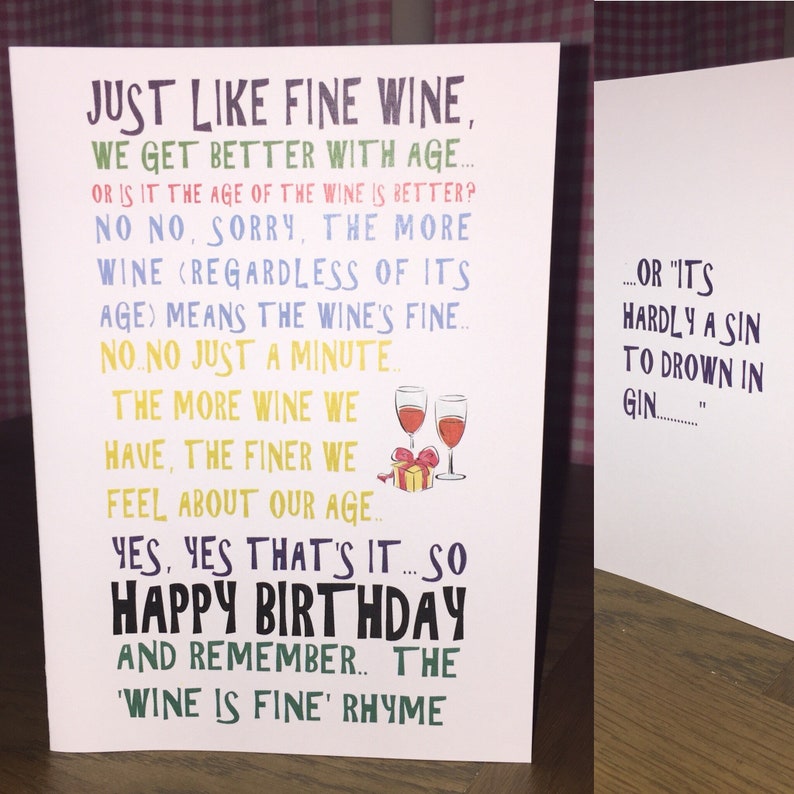 JUST LIKE FINE WINE,
WE GET BETTER WITH AGE...
OR IS IT THE AGE OF THE WINE IS BETTER?
NO NO, SORRY, THE MORE
WINE (REGARDLESS OF ITS
AGE) MEANS THE WINE'S FINE..
NO..NO JUST A MINUTE..
THE MORE WINE WE
HAVE, THE FINER WE
FEEL ABOUT OUR AGE..
YES, YES THAT'S IT... SO
HAPPY BIRTHDAY
AND REMEMBER.. THE
'WINE IS FINE' RHYME
....OR "ITS
HARDLY A SIN
TO DROWN IN
GIN............"